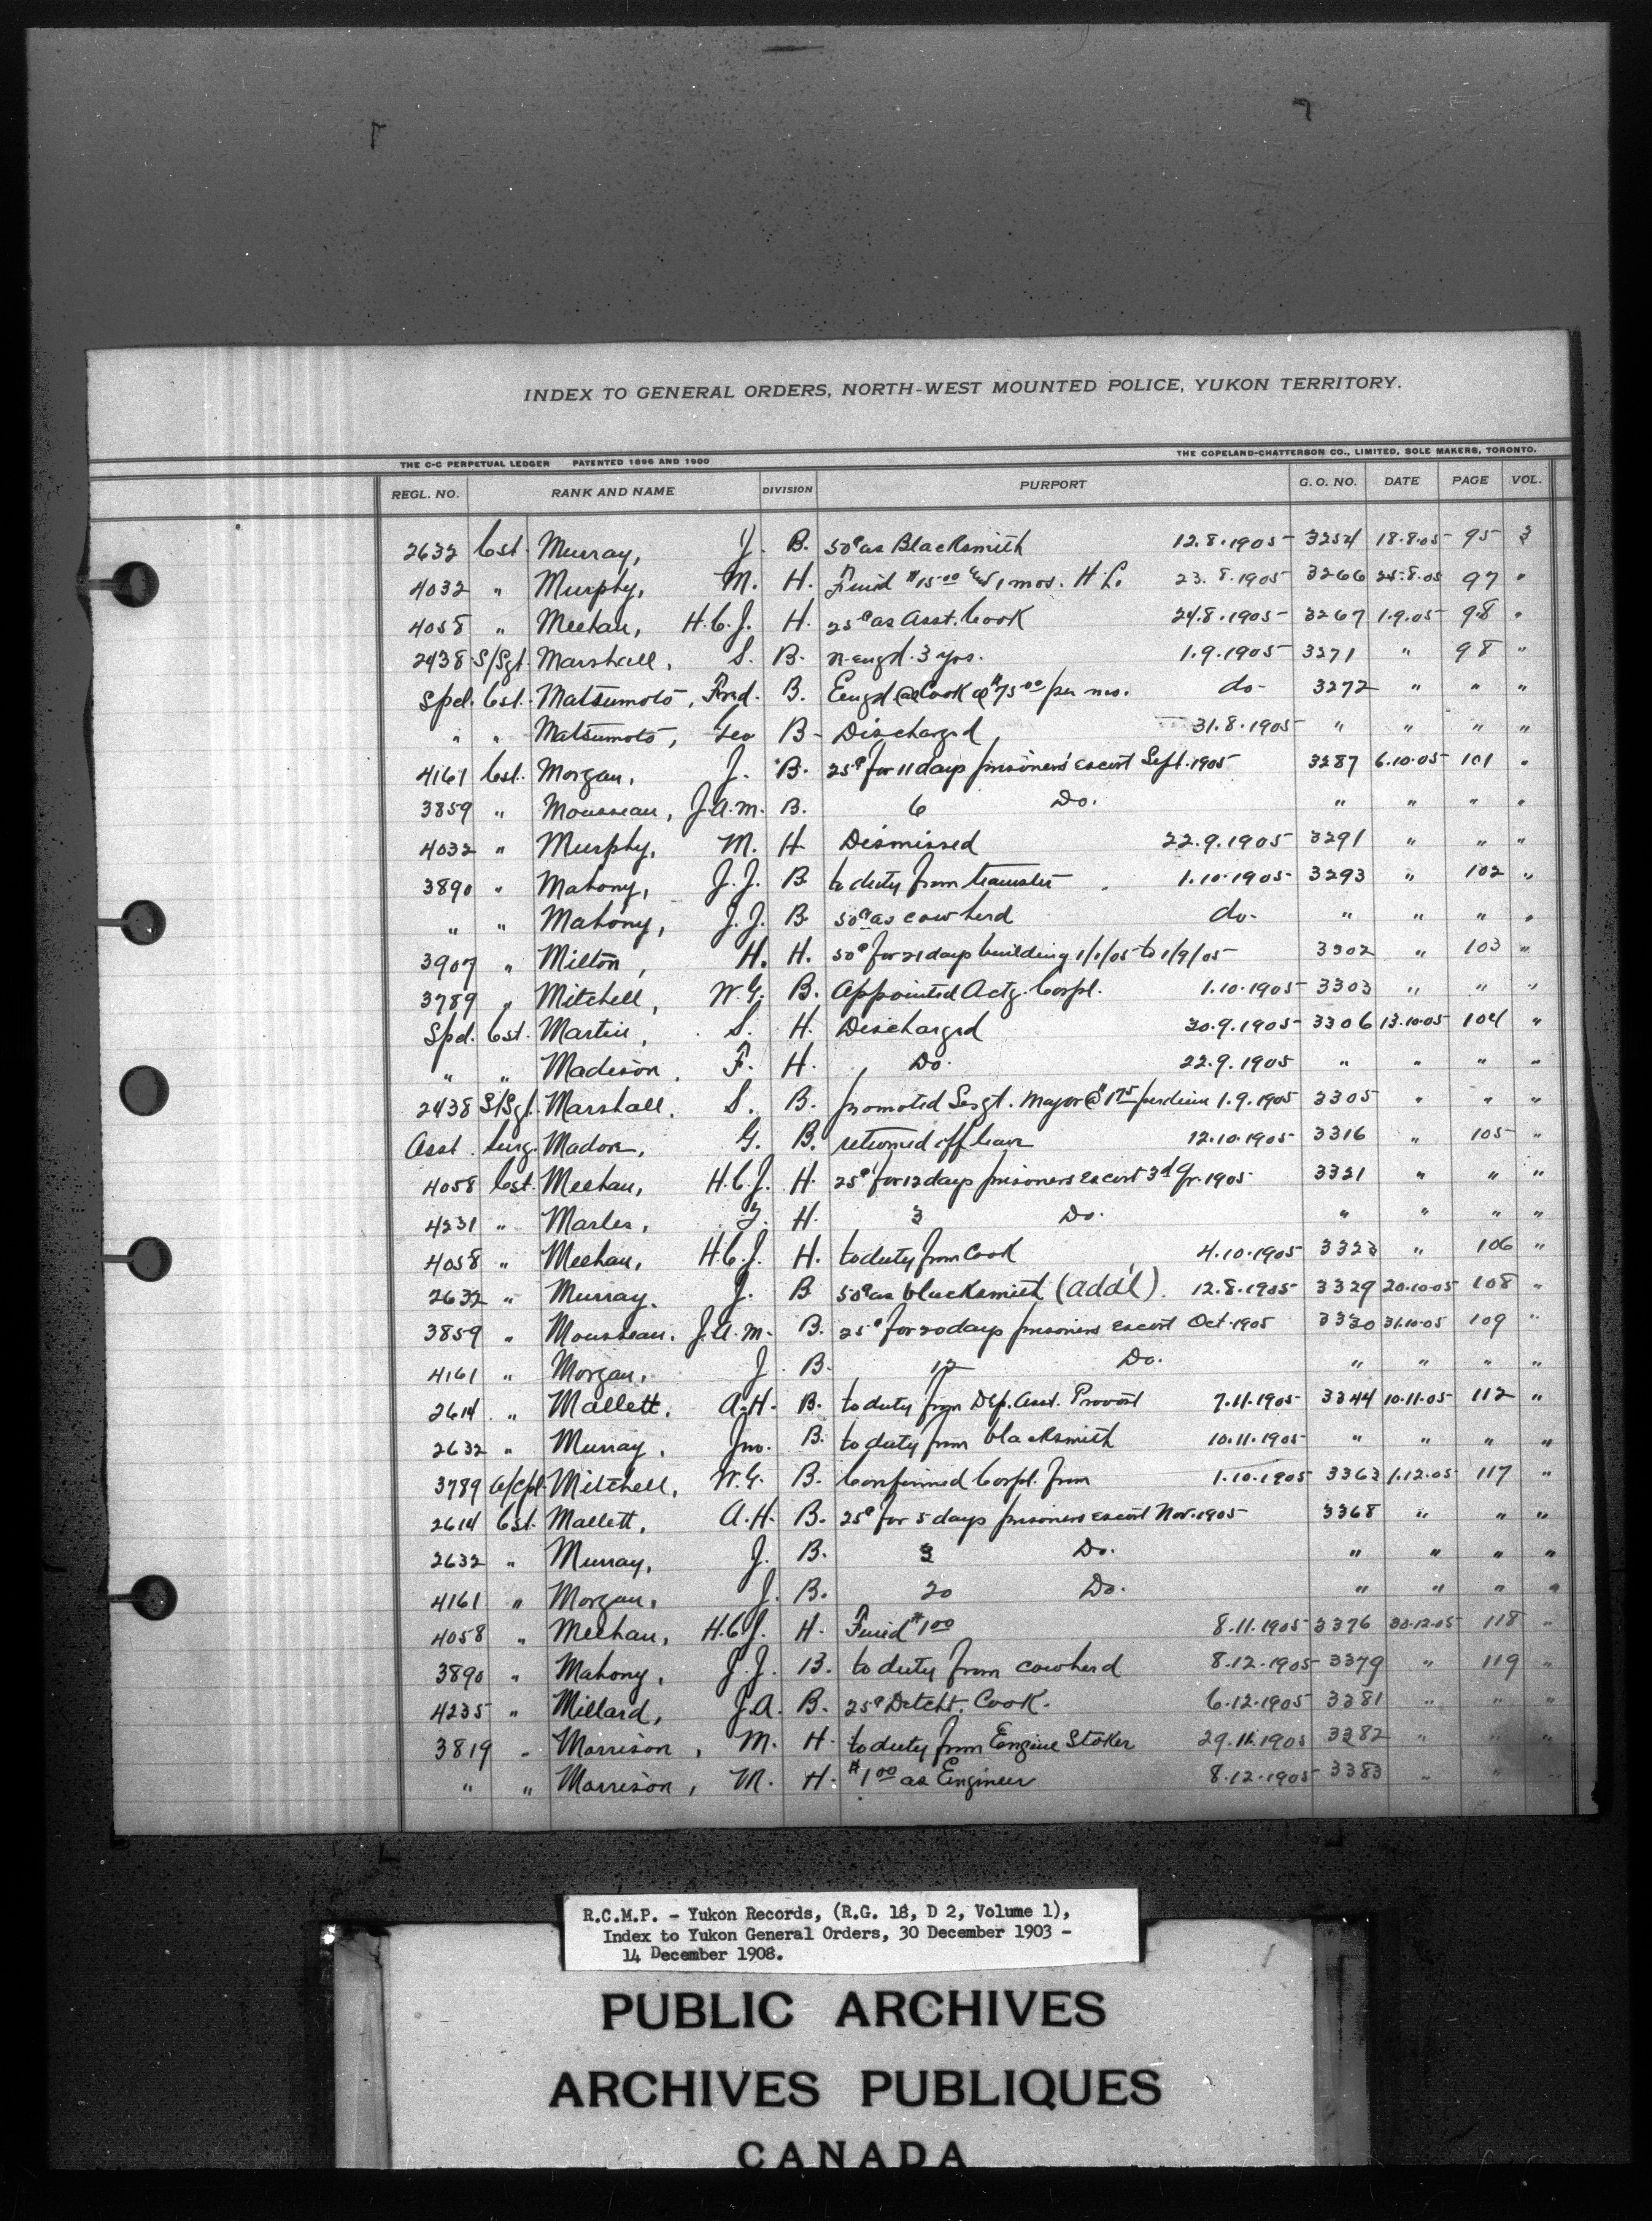 INDEX TO GENERAL ORDERS, NORTH-WEST MOUNTED POLICE, YUKON TERRITORY.
THE C-C PERPETUAL LEDGER PATENTED 1896 AND 1900 THE COPELAND-CHATTERSON CO., LIMITED, SOLE MAKERS, TORONTO.
REGL. NO. RANK AND NAME DIVISION PURPORT G. O. NO. DATE PAGE VOL.
2632 Cst. Murray, J. B. 50¢ as Blacksmith 12.8.1905 3254 18.8.05 95 3
4032 " Murphy, M. H. Fined $15.00 & 1 mos. H.L. 23.8.1905 3266 25.8.05 97 "
4058 " Meehan, H.C.J. H. 25¢ as Asst. Cook 24.8.1905 3267 1.9.05 98 "
2438 S/Sgt. Marshall, S. B. r-engd. 3 yrs. 1.9.1905 3271 " 98 "
Spcl. Cst. Matsumoto, Fred. B. Engd as Cook @ $75.00 per mo. do- 3272 " " "
" " Matsumoto, Geo B- Discharged 31.8.1905 " " " "
4161 Cst. Morgan, J. B. 25¢ for 11 days prisoners' escort Sept. 1905 3287 6.10.05 101 "
3859 " Mousseau, J.A.M. B. 6 Do. " " " "
4032 " Murphy, M. H Dismissed 22.9.1905 3291 " " "
3890 " Mahony, J.J. B to duty from teamster 1.10.1905 3293 " 102 "
" " Mahony, J.J. B 50¢ as cowherd do- " " " "
3907 " Milton, H. H. 50¢ for 21 days building 1/1/05 to 1/9/05 3302 " 103 "
3789 " Mitchell, W.G. B. Appointed Actg. Corpl. 1.10.1905 3303 " " "
Spcl. Cst. Martin, S. H. Discharged 30.9.1905 3306 13.10.05 104 "
" " Madison, F. H. Do. 22.9.1905 " " " "
2438 S/Sgt. Marshall, S. B. promoted Sergt. Major @ $1.75 per diem 1.9.1905 3305 " " "
Asst. Surg. Madore, G. B. returned off leave 12.10.1905 3316 " 105 "
4058 Cst. Meehan, H.C.J. H. 25¢ for 12 days prisoners escort 3d Qr. 1905 3321 " " "
4231 " Marles, H. 3 Do. " " " "
4058 " Meehan, H.C.J. H. to duty from Cook 4.10.1905 3323 " 106 "
2632 " Murray, J. B 50¢ as blacksmith (add'l). 12.8.1905 3329 20.10.05 108 "
3859 " Mousseau, J.A.M. B. 25¢ for 20 days prisoners escort Oct. 1905 3330 31.10.05 109 "
4161 " Morgan, J B. 12 Do. " " " "
2614 " Mallett, A.H. B. to duty from Dep. Asst. Provost 7.11.1905 3344 10.11.05 112 "
2632 " Murray, Jno. B. to duty from blacksmith 10.11.1905 " " " "
3789 A/Cpl. Mitchell, W.G. B. Confirmed Corpl. from 1.10.1905 3363 1.12.05 117 "
2614 Cst. Mallett, A.H. B. 25¢ for 5 days prisoners escort Nov. 1905 3368 " " "
2632 " Murray, J. B. 3 Do. " " " "
4161 " Morgan, J. B. 20 Do. " " " "
4058 " Meehan, H.C.J. H. Fined $1.00 8.11.1905 3376 30.12.05 118 "
3890 " Mahony, J.J. B. to duty from cowherd 8.12.1905 3379 " 119 "
4235 " Millard, J.A. B. 25¢ Detcht. Cook. 6.12.1905 3381 " " "
3819 " Morrison, M. H. to duty from Engine Stoker 29.11.1905 3382 " " "
" " Morrison, M. H. $1.00 as Engineer 8.12.1905 3383 " " "
R.C.M.P. - Yukon Records, (R.G. 18, D 2, Volume 1),
Index to Yukon General Orders, 30 December 1903 -
14 December 1908.
PUBLIC ARCHIVES
ARCHIVES PUBLIQUES
CANADA